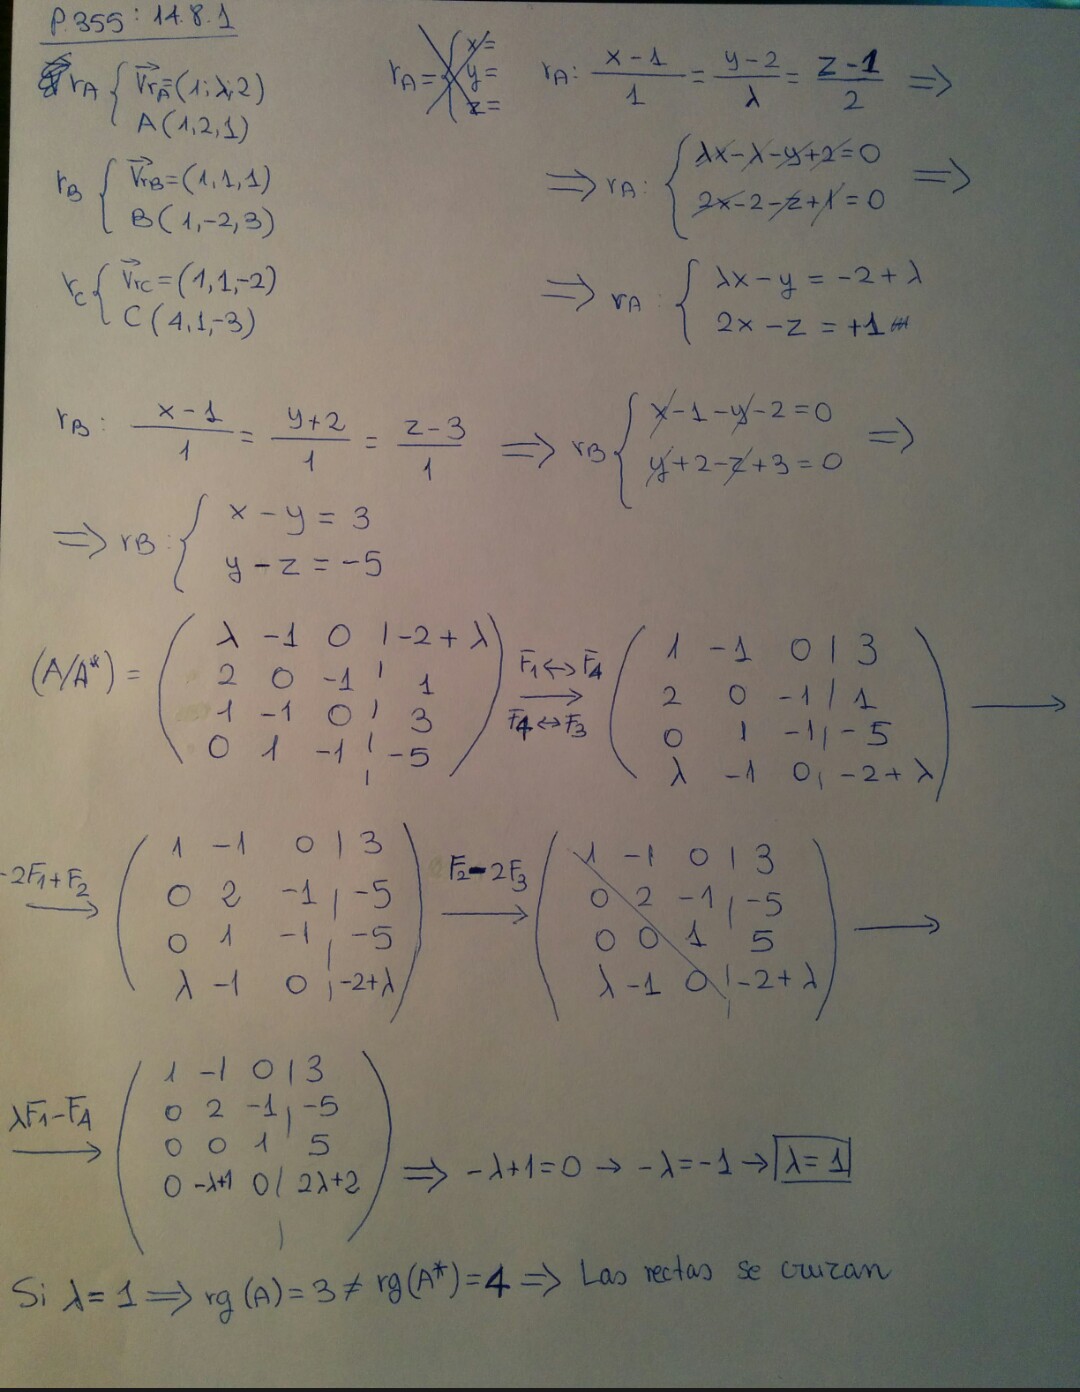 P.355: 14.8.1
rA { V⃗rA=(1,λ,2)
A(1,2,1)
rA= { x=
y=
z=
rA: (x-1)/1 = (y-2)/λ = (z-1)/2 ⇒
rB { V⃗rB=(1,1,1)
B(1,-2,3)
⇒ rA: { λx-λ-y+2=0
2x-2-z+1=0 ⇒
rC { V⃗rC=(1,1,-2)
C(4,1,-3)
⇒ rA: { λx-y = -2+λ
2x-z = +1
rB: (x-1)/1 = (y+2)/1 = (z-3)/1 ⇒ rB { x-1-y-2=0
y+2-z+3=0 ⇒
⇒ rB: { x-y = 3
y-z = -5
(A/A*) = ( λ -1 0 | -2+λ
2 0 -1 | 1
1 -1 0 | 3
0 1 -1 | -5 )
F1↔F4
F4↔F3
→
( 1 -1 0 | 3
2 0 -1 | 1
0 1 -1 | -5
λ -1 0 | -2+λ ) →
-2F1+F2 →
( 1 -1 0 | 3
0 2 -1 | -5
0 1 -1 | -5
λ -1 0 | -2+λ )
F2-2F3 →
( 1 -1 0 | 3
0 2 -1 | -5
0 0 1 5
λ -1 0 | -2+λ ) →
λF1-F4 →
( 1 -1 0 | 3
0 2 -1 | -5
0 0 1 | 5
0 -λ+1 0 | 2λ+2 )
⇒ -λ+1=0 → -λ=-1 → λ=1
Si λ=1 ⇒ rg(A)=3 ≠ rg(A*)=4 ⇒ Las rectas se cruzan